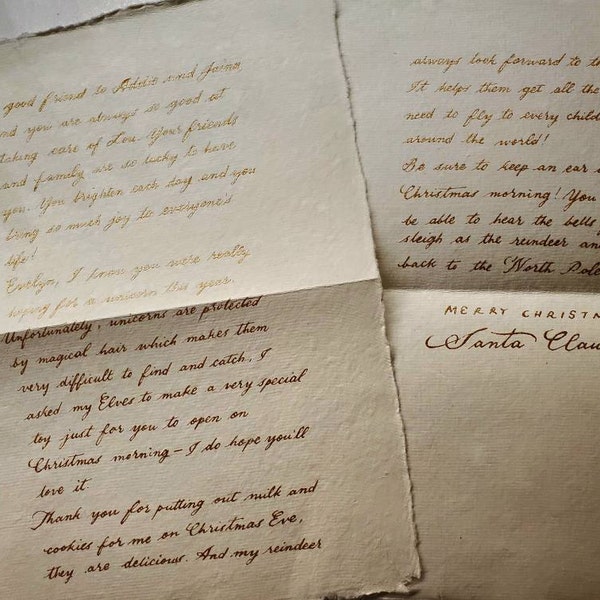 good friend to Addie and
and you are always so good at
taking care of Lou. Your friends
and family are so lucky to have
you. You brighten each day and you
bring so much joy to everyone's
life!
Evelyn, I know you were really
hoping for a unicorn this year.
Unfortunately, unicorns are protected
by magical hair which makes them
very difficult to find and catch, I
asked my Elves to make a very special
toy just for you to open on
Christmas morning - I do hope you'll
love it.
Thank you for putting out milk and
cookies for me on Christmas Eve,
they are delicious. And my reindeer
always look forward to t
It helps them get all the
need to fly to every child
around the world!
Be sure to keep an ear
Christmas morning! You
be able to hear the bells
sleigh as the reindeer and
back to the North Pole
MERRY CHRISTM
Santa Clau